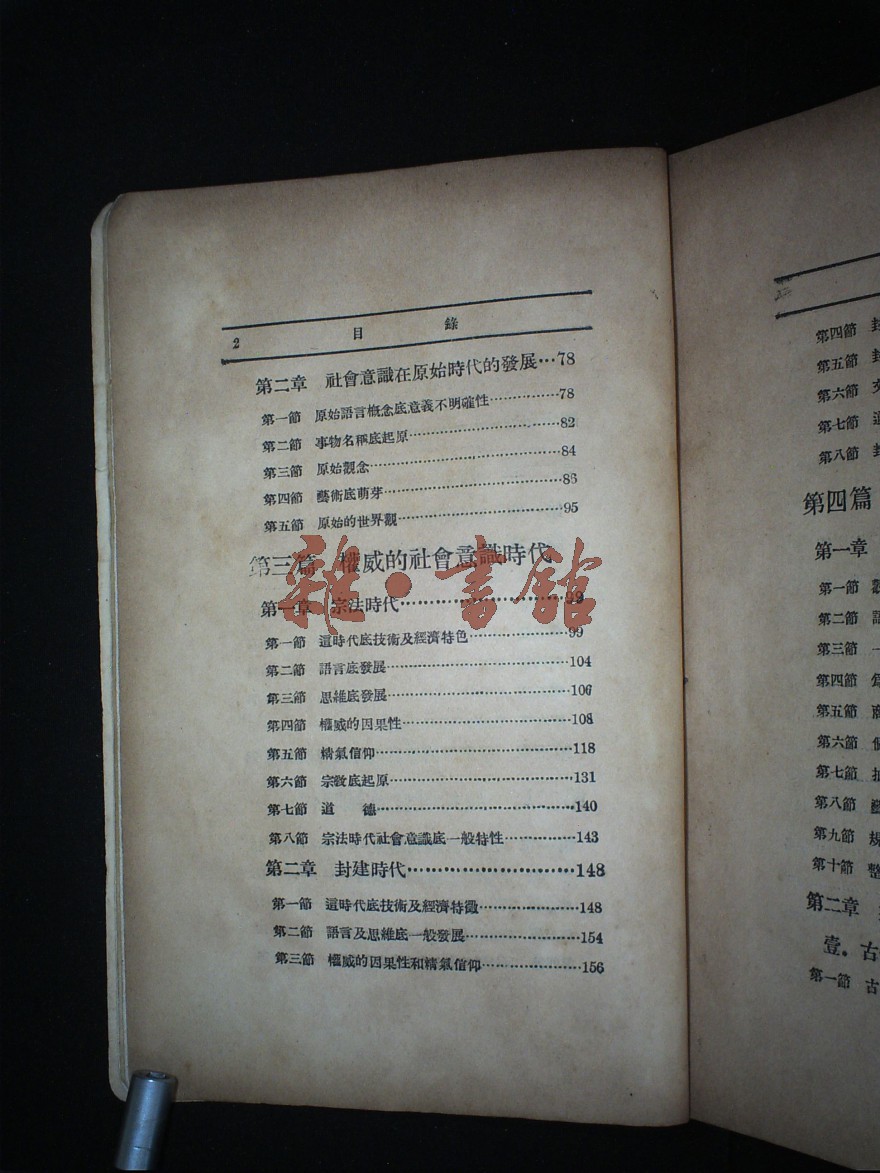 2 目錄
第二章 社會意識在原始時代的發展…78
第一節 原始語言概念底意義不明確性……………78
第二節 事物名稱底起原……………………82
第三節 原始觀念……………………84
第四節 藝術底萌芽……………………86
第五節 原始的世界觀……………………95
第三篇 權威的社會意識時代
第一章 宗法時代……………………99
第一節 這時代底技術及經濟特色……………99
第二節 語言底發展……………………104
第三節 思維底發展……………………106
第四節 權威的因果性……………………108
第五節 精氣信仰……………………118
第六節 宗教底起原……………………131
第七節 道德……………………140
第八節 宗法時代社會意識底一般特性…………143
第二章 封建時代……………………148
第一節 這時代底技術及經濟特徵……………148
第二節 語言及思維底一般發展……………154
第三節 權威的因果性和精氣信仰……………156
雜·書館
第四節 封
第五節 封
第六節
第七節
第八節 封
第四篇
第一章
第一節
第二節
第三節 一
第四節
第五節
第六節
第七節
第八節
第九節 規
第十節 整
第二章
壹.古
第一節 古